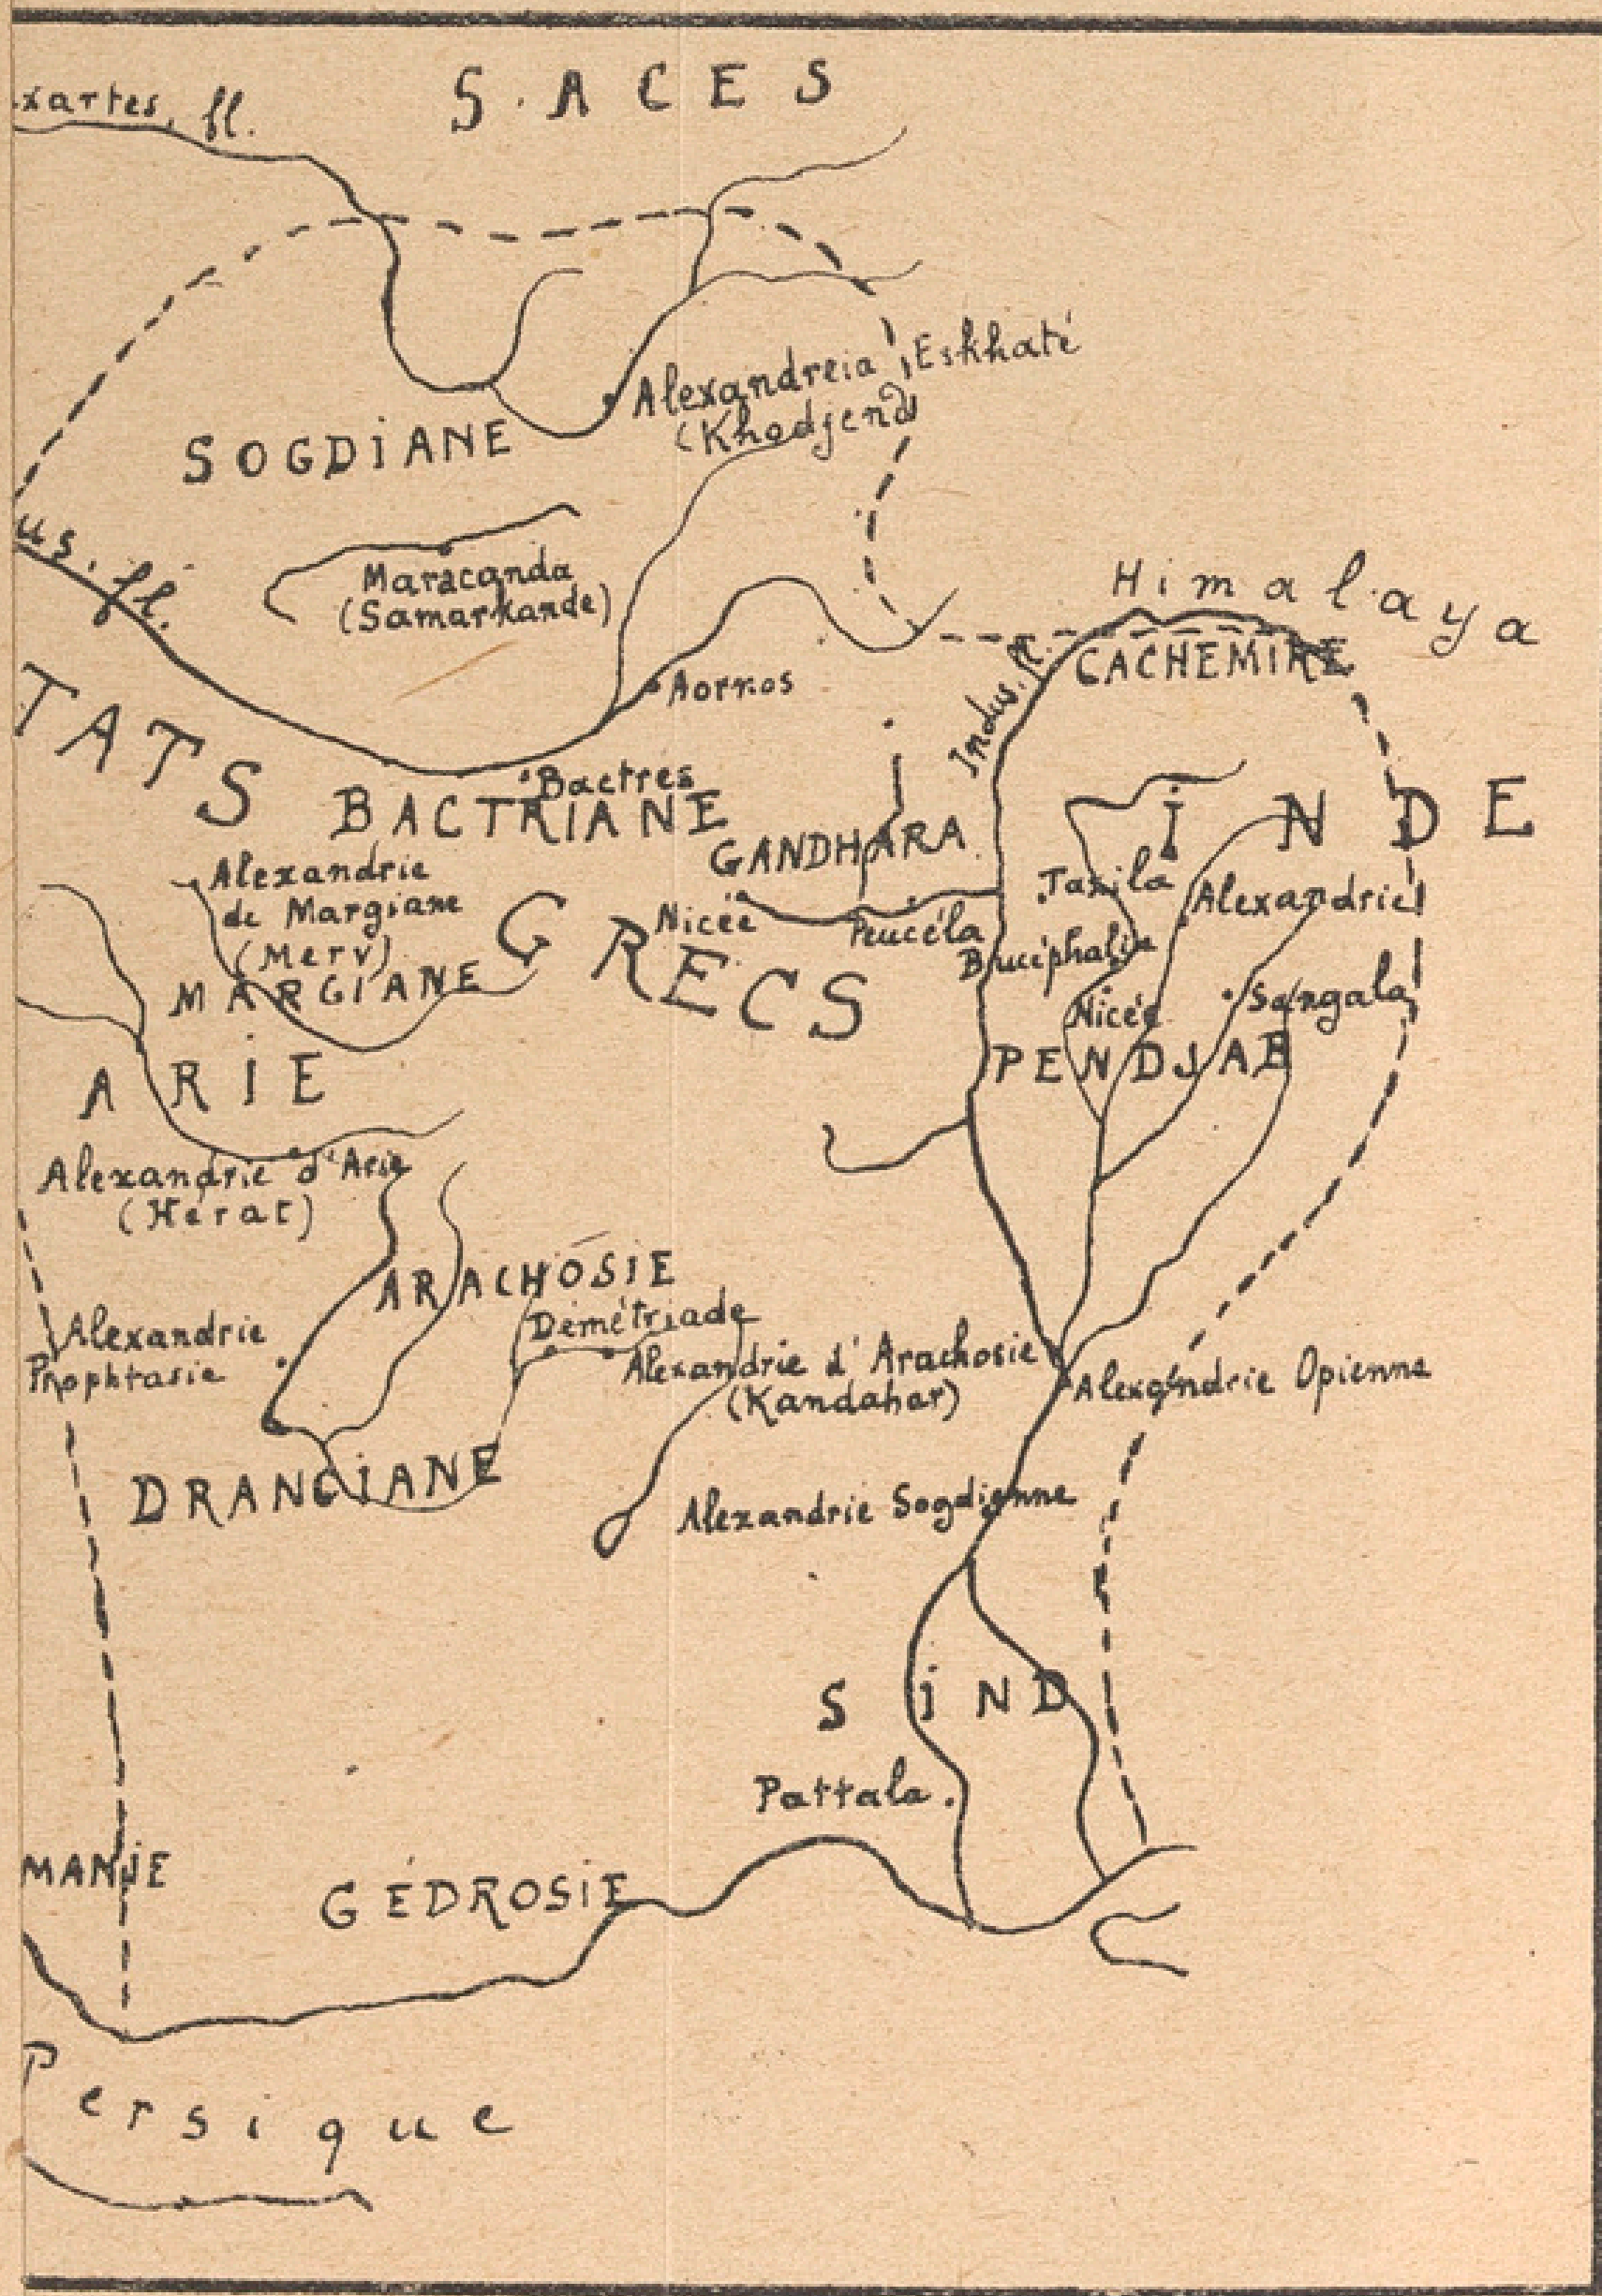 xartes, fl.
SACES
Alexandreia Eskhaté
(Khodjend)
SOGDIANE
us. fl.
Maracanda
(Samarkande)
Himalaya
CACHEMIRE
Indus. fl.
Aornos
TATS
Bactres
BACTRIANE
INDE
GANDHARA
Alexandrie
de Margiane
(Merv)
MARGIANE
GRECS
Nicée
Peucéla
Taxila
Alexandrie
Bucéphalie
Nicée
Sangala
PENDJAB
ARIE
Alexandrie d'Arie
(Hérat)
ARACHOSIE
Démétriade
Alexandrie
Prophtasie
Alexandrie d'Arachosie
(Kandahar)
Alexandrie Opienne
DRANGIANE
Alexandrie Sogdienne
SIND
Pattala
MANIE
GÉDROSIE
Persique